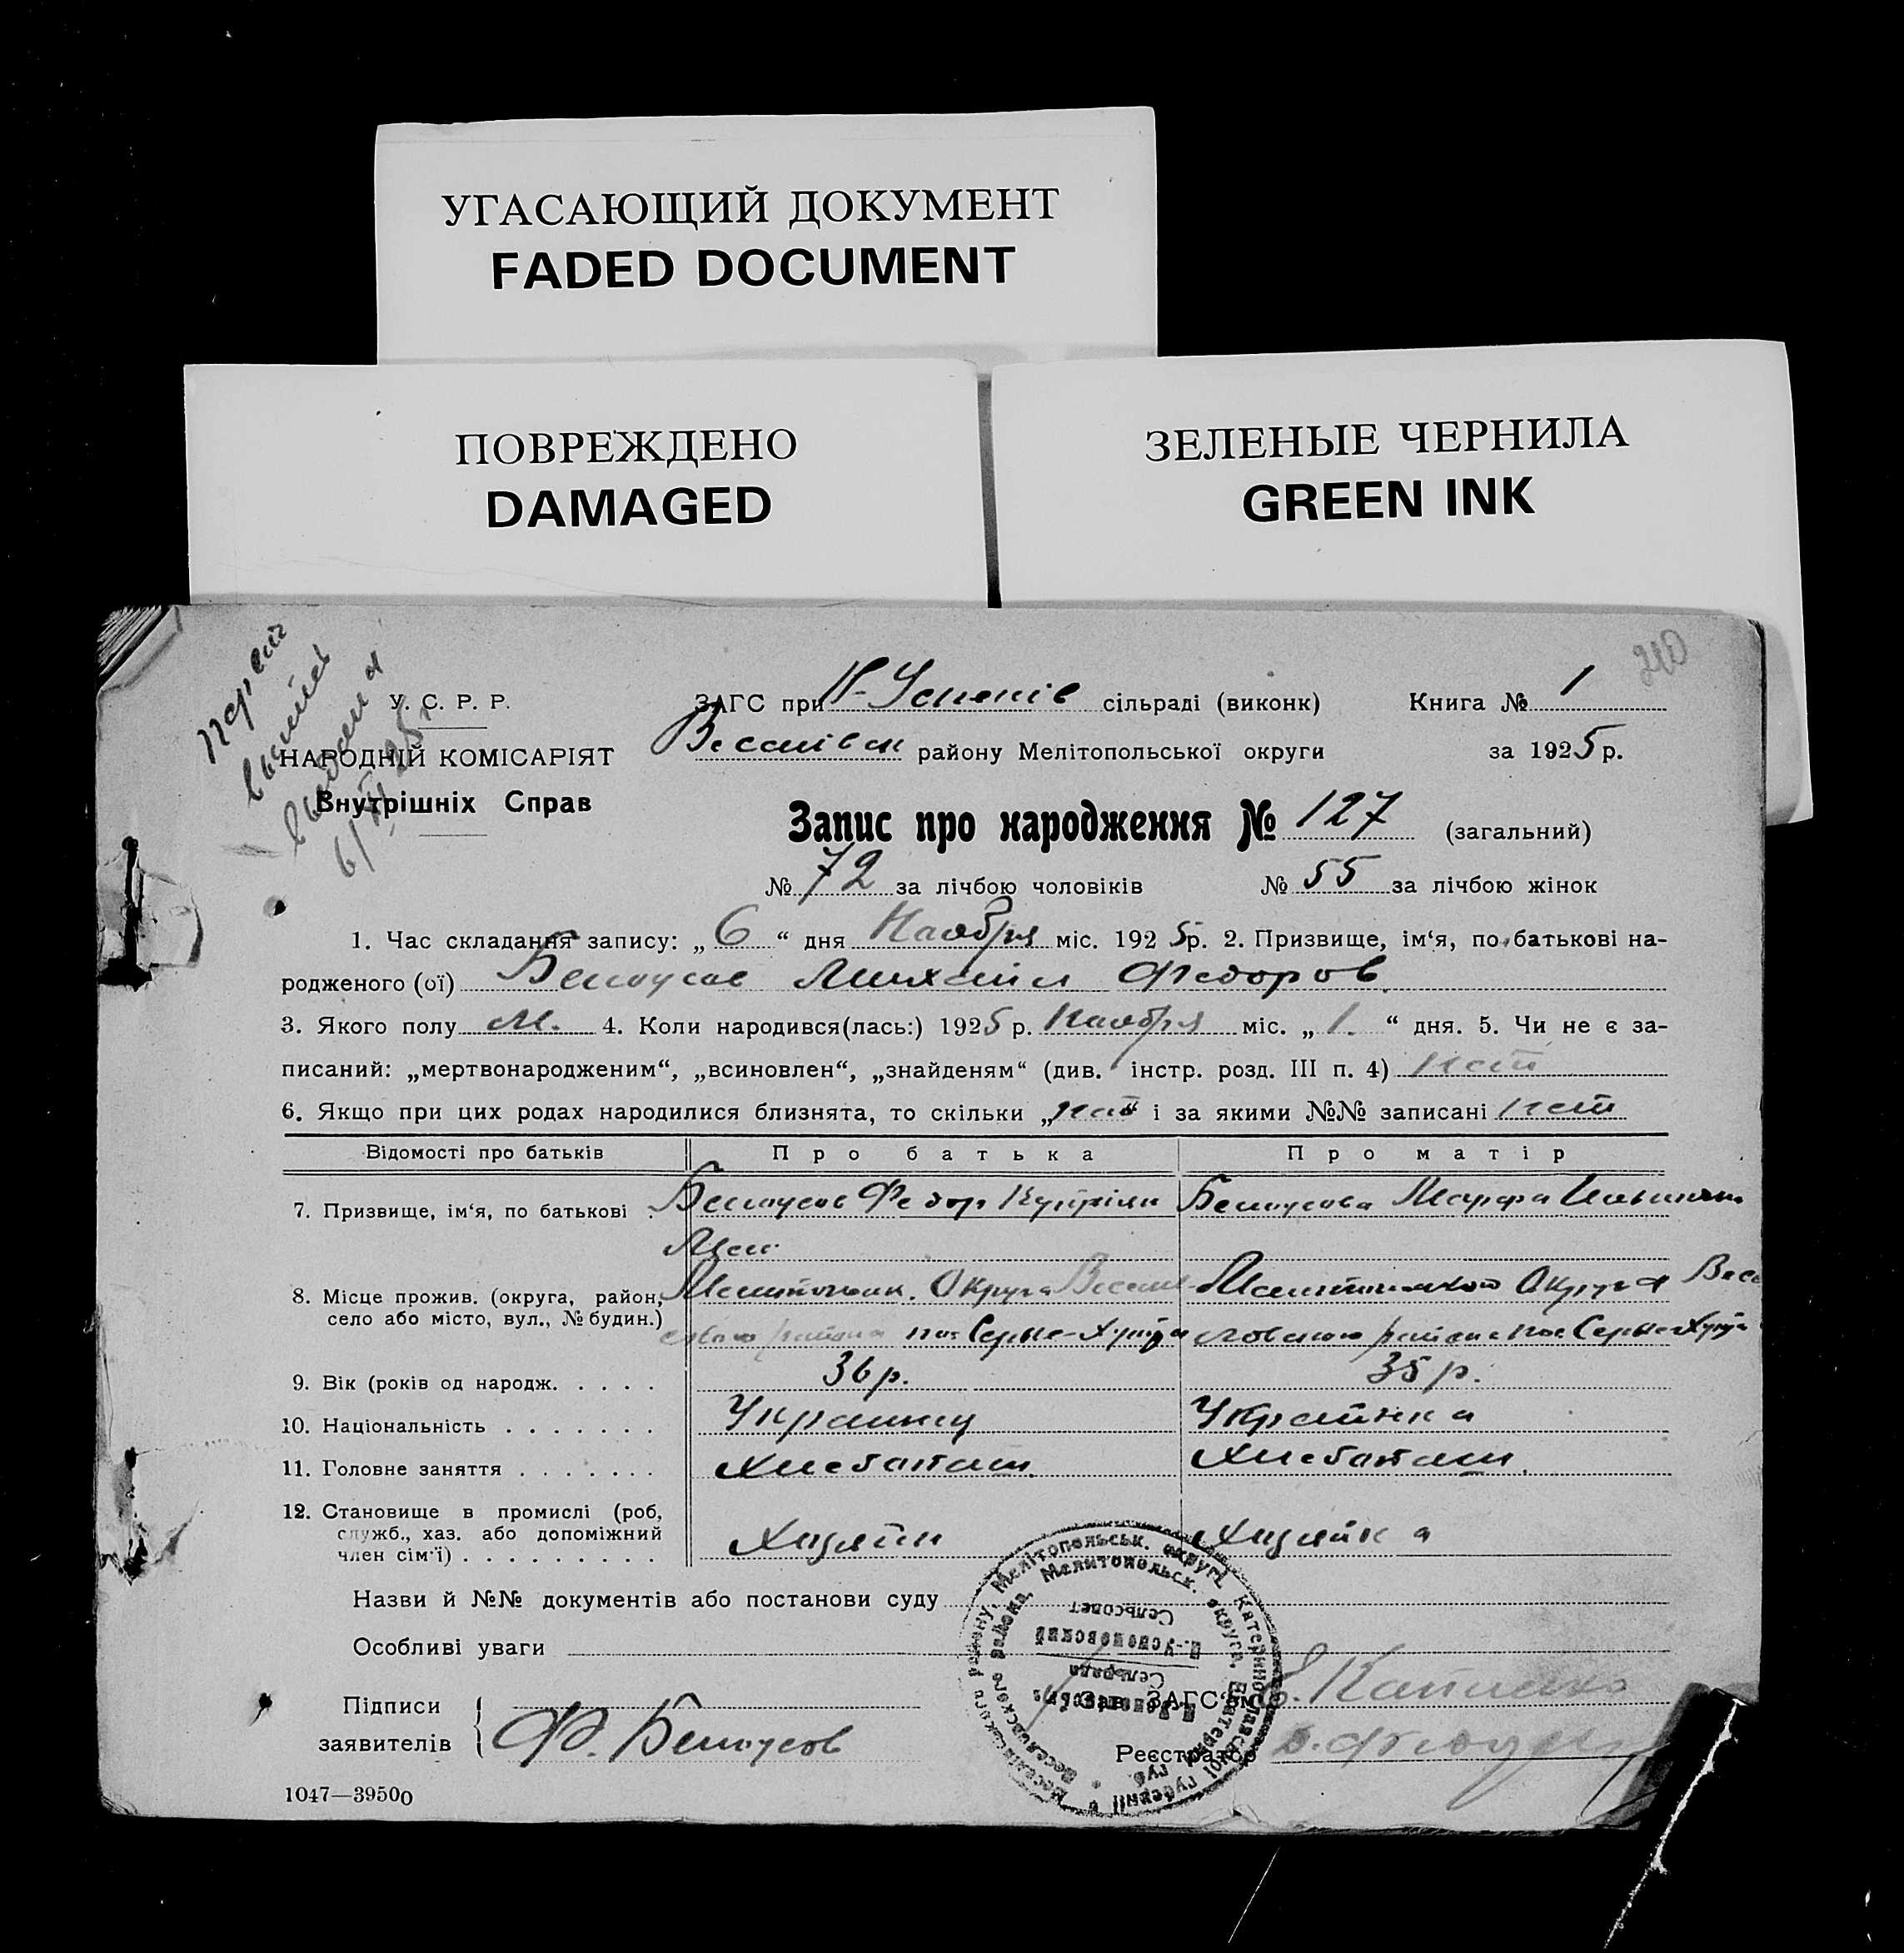 УГАСАЮЩИЙ ДОКУМЕНТ
FADED DOCUMENT
ПОВРЕЖДЕНО
DAMAGED
ЗЕЛЕНЫЕ ЧЕРНИЛА
GREEN INK
210
У. С. Р. Р.
НАРОДНІЙ КОМІСАРІЯТ
Внутрішніх Справ
ЗАГС при Н-Успенів сільраді (виконк) Книга № 1
Веселівск району Мелітопольської округи за 1925 р.
Запис про народження № 127 (загальний)
№ 72 за лічбою чоловіків № 55 за лічбою жінок
1. Час складання запису: „ 6 “ дня Ноября міс. 1925р. 2. Призвище, ім‘я, по батькові на-
родженого (ої) Белоусов Михаил Федоров.
3. Якого полу М. 4. Коли народився(лась:) 1925 р. Ноября міс. „ 1. “ дня. 5. Чи не є за-
писаний: „мертвонародженим“, „всиновлен“, „знайденям“ (див. інстр. розд. III п. 4) нет
6. Якщо при цих родах народилися близнята, то скільки „нет“ і за якими №№ записані нет
Відомості про батьків Про батька Про матір
7. Призвище, ім‘я, по батькові . Белоусов Федор Куприян Белоусова Марфа
8. Місце прожив. (округа, район, село або місто, вул., № будин.) Мелитопольск. Округа Весело- Округа Весе
района пос района пос
9. Вік (років од народж. . . . . 36 р. 35 р.
10. Національність . . . . . . . Украинец Украінка
11. Головне заняття . . . . . . . Хлебопаш. Хлебопаш.
12. Становище в промислі (роб, служб., хаз. або допоміжний член сім‘ї) . . . . . . . . . Хазяїн Хазяйка
Назви й №№ документів або постанови суду
Особливі уваги
Підписи
заявителів
Ф. Белоусов
Зав. ЗАГС‘ом
Реєстратор
Веселівського району, Мелітопольськ. округи, Катеринославської губернії
Веселовского района, Мелитопольск. округа, Екатерин. губ.
Н.-Успеновский
Сельсовет
Сельрада
1047—39500